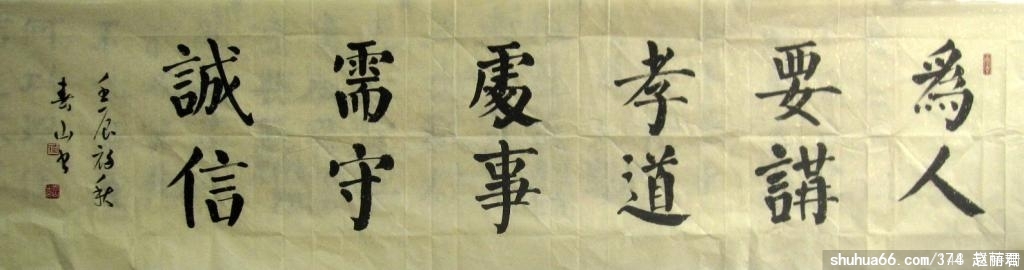 為人
要講
孝道
處事
需守
誠信
壬辰初秋
壽山書
shuhua66.com/374 赵萠君